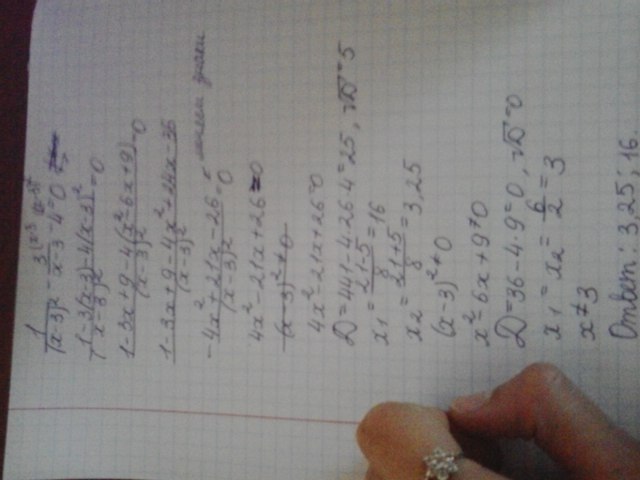 1/(x-3)² - 3/(x-3) - 4 = 0
(1-3(x-3)-4(x-3)²)/(x-3)² = 0
(1-3x+9-4(x²-6x+9))/(x-3)² = 0
(1-3x+9-4x²+24x-36)/(x-3)²
(-4x²+21x-26)/(x-3)² = 0 меняем знаки
4x²-21x+26=0
(x-3)²≠0
4x²-21x+26=0
D=441-4·26·4=25, √D=5
x1=(21-5)/8=16
x2=(21+5)/8=3,25
(x-3)²≠0
x²-6x+9≠0
D=36-4·9=0, √D=0
x1=x2=6/2=3
x≠3
Ответ: 3,25; 16